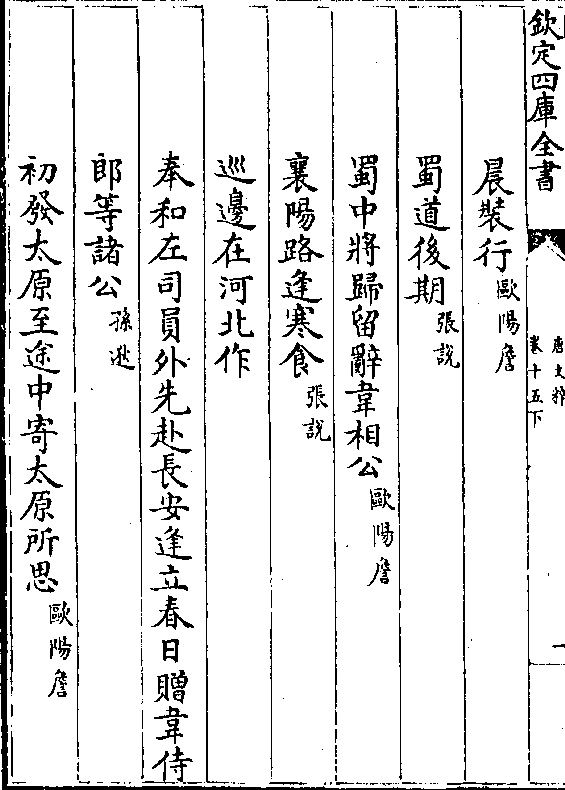 欽定四庫全書
唐文粹
卷十五下
一
晨裝行歐陽詹
蜀道後期張說
蜀中將歸留辭韋相公歐陽詹
襄陽路逢寒食張說
巡邊在河北作
奉和左司員外先赴長安逢立春日贈韋侍
郎等諸公孫逖
初發太原至途中寄太原所思歐陽詹